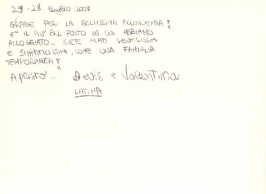 29-28 Luglio 2007
GRAZIE PER LA BELLISSIMA ACCOGLIENZA!
E' IL PIU' BEL POSTO IN CUI ABBIAMO
ALLOGGIATO... SIETE STATI GENTILISSIMI
E SIMPATICISSIMI, COME UNA FAMIGLIA
TEMPORANEA!
A presto... Denis e Valentina
LATINA